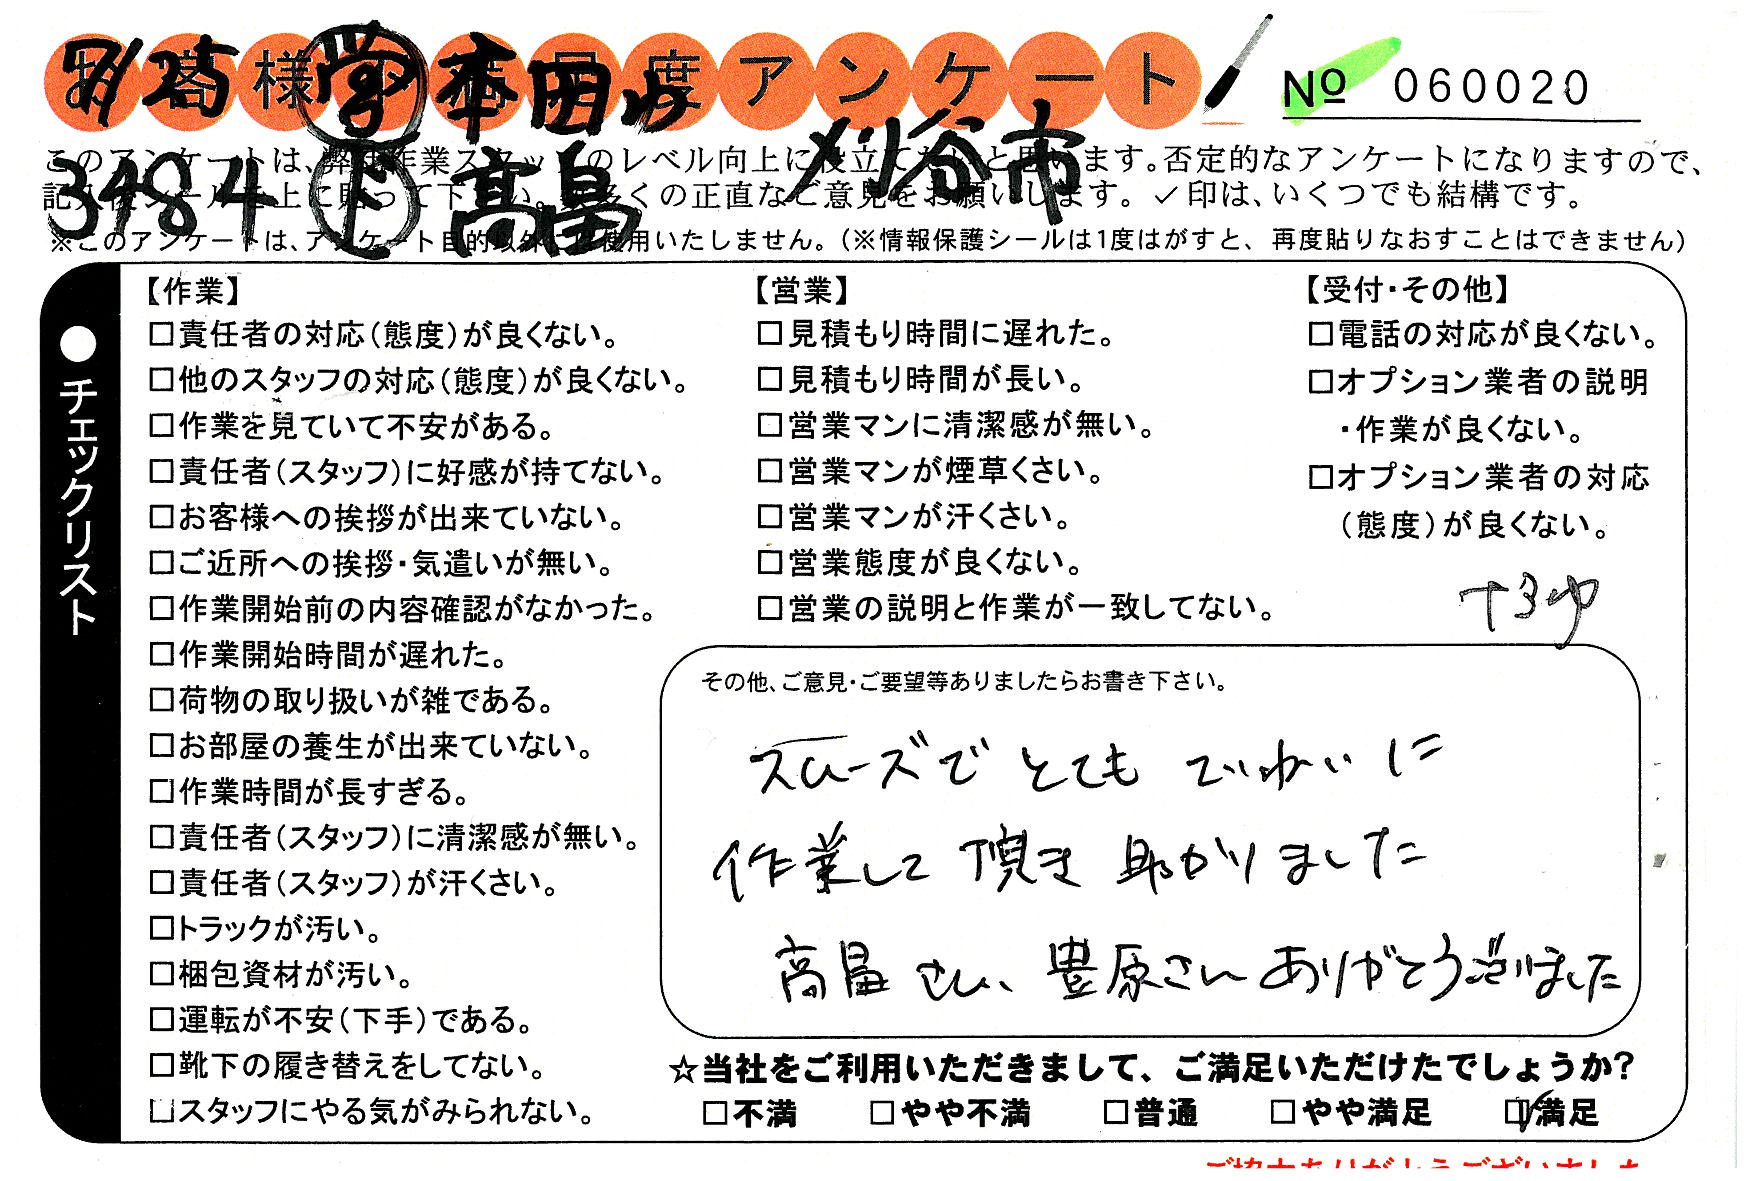 お客様満足度アンケート
№ 060020
7/25 学 本田
3484 下 高畠 刈谷市
このアンケートは、弊社作業スタッフのレベル向上に役立てたいと思います。否定的なアンケートになりますので、
記入後シールを上に貼って下さい。数多くの正直なご意見をお願いします。✓印は、いくつでも結構です。
※このアンケートは、アンケート目的以外には使用いたしません。(※情報保護シールは1度はがすと、再度貼りなおすことはできません)
●チェックリスト
【作業】
□責任者の対応(態度)が良くない。
□他のスタッフの対応(態度)が良くない。
□作業を見ていて不安がある。
□責任者(スタッフ)に好感が持てない。
□お客様への挨拶が出来ていない。
□ご近所への挨拶・気遣いが無い。
□作業開始前の内容確認がなかった。
□作業開始時間が遅れた。
□荷物の取り扱いが雑である。
□お部屋の養生が出来ていない。
□作業時間が長すぎる。
□責任者(スタッフ)に清潔感が無い。
□責任者(スタッフ)が汗くさい。
□トラックが汚い。
□梱包資材が汚い。
□運転が不安(下手)である。
□靴下の履き替えをしてない。
□スタッフにやる気がみられない。
【営業】
□見積もり時間に遅れた。
□見積もり時間が長い。
□営業マンに清潔感が無い。
□営業マンが煙草くさい。
□営業マンが汗くさい。
□営業態度が良くない。
□営業の説明と作業が一致してない。
【受付・その他】
□電話の対応が良くない。
□オプション業者の説明
・作業が良くない。
□オプション業者の対応
(態度)が良くない。
その他、ご意見・ご要望等ありましたらお書き下さい。
スムーズで とても ていねいに
作業して 頂き 助かりました
高畠さん、豊原さん ありがとうございました
☆当社をご利用いただきまして、ご満足いただけたでしょうか?
□不満 □やや不満 □普通 □やや満足 ☑満足
ご協力ありがとうございました